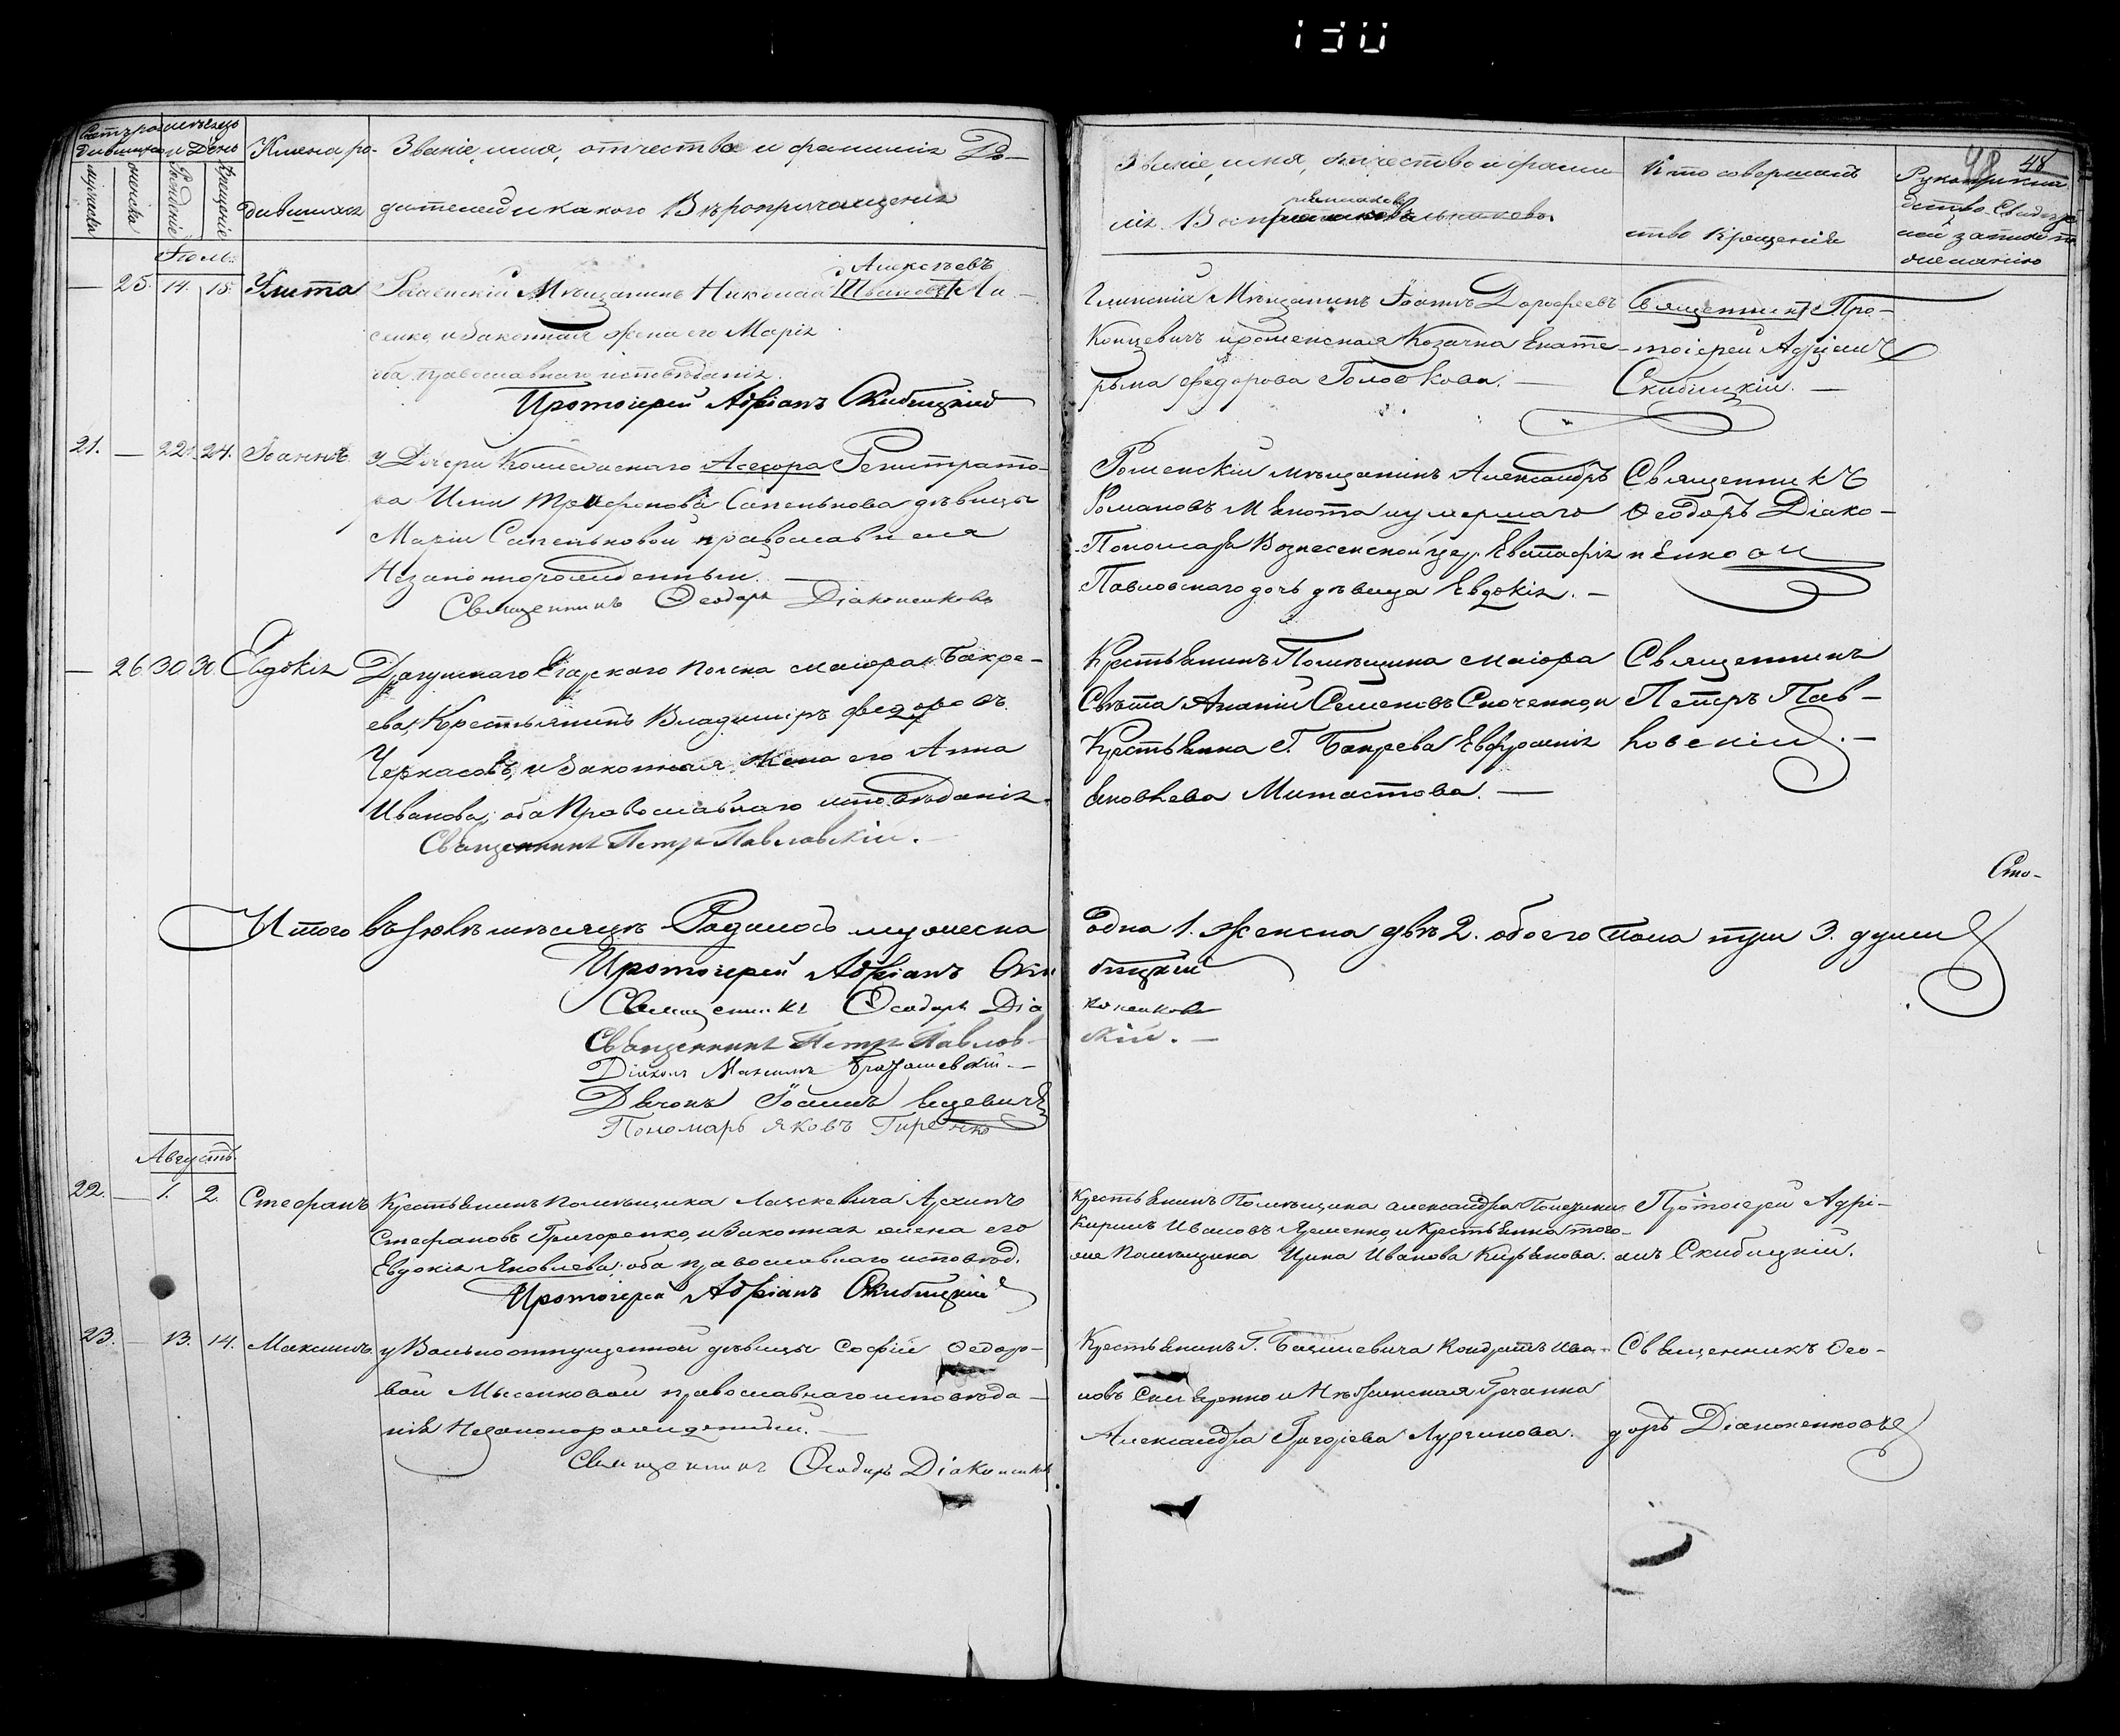 130
48 48
Счетъ родившихся Мѣсяцъ и День
мужеска женска Рожденіе Крещеніе
Имена родившихся
Званіе, имя, отчество и фамилія Ро-
дителей и какого Вѣроисповѣданія
Званіе, имя, отчество и фами
лія Воспріемниковъ
Кто совершалъ
ство Крещенія
Іюль
— 25. 14. 15. Улита
Алексѣевъ
Роменскій Мѣщанинъ Николай Ивановъ Ли-
сенко, и Законная жена его Марія
оба православнаго исповѣданія.
Протоіерей Адріанъ Скибицкій
Глинскій Мѣщанинъ Іоаннъ Дорофеевъ
Концевичъ и роменская Козачка Екате-
рина Федорова Головкова. —
Священникъ Про-
тоіерей Адріанъ
Скибицкій. —
21. — 22. 24. Іоаннъ
у Дочери Колежскаго Асесора Регистрато-
ра Трифонова Сапенькова дѣвицы
Маріи Сапеньковой православныя
Незаконнорожденный. —
Священникъ Ѳеодоръ Діаконенковъ
Роменскій мѣщанинъ Александръ
Романовъ и умершаго
Пономаря Вознесенской цер. Евстафія
Павловскаго дочь дѣвица Евдокія. —
Священникъ
Ѳеодоръ Діако-
ненковъ
— 26 30 30 Евдокія
Драгунскаго Егарскаго полка маіора Бакре-
ева, Крестьянинъ Владиміръ Федоровъ
Черкасовъ, и Законная жена его Анна
Иванова, оба Православнаго исповѣданія.
Священникъ Петръ Павловскій.
Крестьянинъ Помѣщика маіора
Свѣта Ананій Семеновъ и
Крестьянка Г. Бакрева Евфросинія
Яковлева Митастова. —
Священникъ
Петръ Пав-
ловскій. —
Сто-
Итого въ Іюлѣ мѣсяцѣ Родилось мужеска
одна 1. женска двѣ 2. обоего пола три 3. души
Протоіерей Адріанъ Скибицкій
Священникъ Ѳеодоръ Діаконенковъ
Священникъ Петръ Павловскій. —
Діаконъ Максимъ
Дьячокъ Іоаннъ Яцевичъ
Пономарь Яковъ Гиренко
Августъ
22. — 1. 2. Стефанъ
Крестьянинъ помѣщика Лацкевича Архипъ
Стефановъ Григоренко, и Законная жена его
Евдокія Яковлева, оба православнаго исповѣд.
Протоіерей Адріанъ Скибицкій
Крестьянинъ Помѣщика Александра
Кирилъ Ивановъ Яременко, и Крестьянка того-
же помѣщика Ирина Иванова Кирьякова.
Протоіерей Адрі-
анъ Скибицкій.
23. — 13. 14. Максимъ
у Вольноотпущенной дѣвицы Софіи Ѳедор-
вой Мысенковой православнаго исповѣда-
нія Незаконорожденный. —
Священникъ Ѳеодоръ Діаконенковъ
Крестьянинъ Г. Базилевича Кондратъ Ива-
новъ и Нѣжинская Гречанка
Александра Григорiева
Священникъ Ѳео-
доръ Діаконенковъ